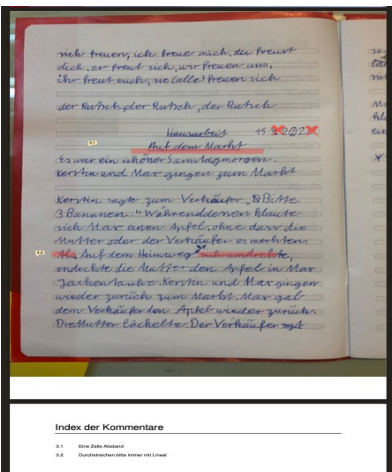 sich freuen, ich freue mich, du freust
dich, er freut sich, wir freuen uns,
ihr freut euch, sie (alle) freuen sich
der Rutsch, der Rutsch, der Rutsch
Hausarbeit 15.
3.1
Auf dem Markt
Es war ein schöner Samstagmorgen.
Kerstin und Max gingen zum Markt
Kerstin sagte zum Verkäufer: "Bitte
3 Bananen." Währenddessen klaute
sich Max einen Apfel, ohne dass die
Mutter oder der Verkäufer es merkten.
3.2
Als Auf dem Heimweg sich umdrehte,
endeckte die Mutter den Apfel in Max
Jackentasche. Kerstin und Max gingen
wieder zurück zum Markt. Max gab
dem Verkäufer den Apfel wieder zurück.
Die Mutter lächelte. Der Verkäufer
Index der Kommentare
3.1 Eine Zeile Abstand
3.2 Durchstreichen bitte immer mit Lineal